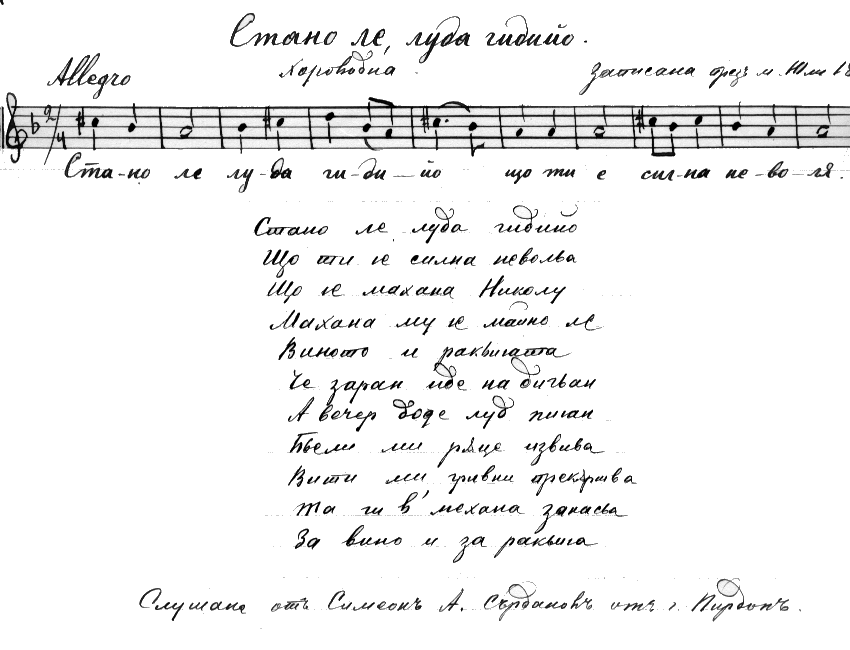 Стано ле, луда гидийо.
Allegro
Хороводна.
Записана презъ м. Юли 18
2/4
Ста-но ле лу-да ги-ди-йо що ти е сил-на не-во-ля.
Стано ле, луда гидийо
Що ти ѥ силна невольа
Що ѥ махана Николу
Махана му ѥ майно ле
Виното и ракьиѭта
Че заран иде на дигьан
А вечер доде луд пиян
Бьели ми рѫце извива
Вити ми гривни прекършва
Та ги в' механа занасьа
За вино и за ракьиа
Слушана отъ Симеонъ А. Сърдановъ отъ г. Пирдопъ.